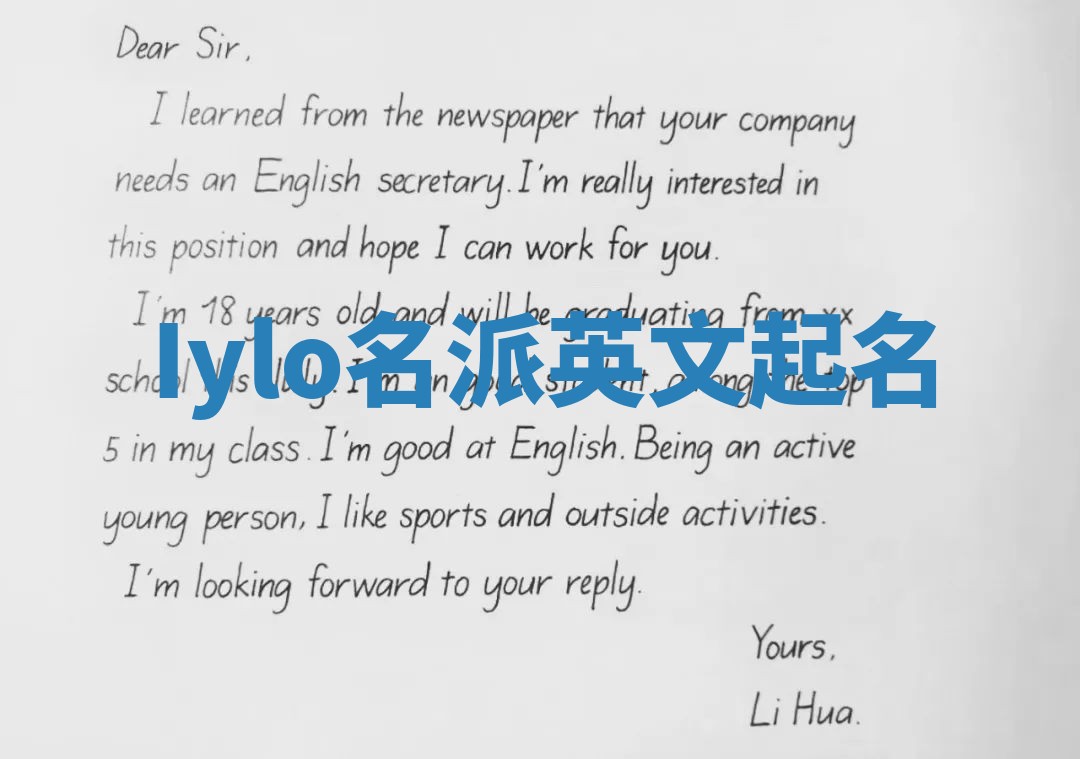 Dear Sir,
I learned from the newspaper that your company
needs an English secretary. I'm really interested in
this position and hope I can work for you.
I'm 18 years old and will be graduating from xx
Iylo名派英文起名
school this July. I'm an good student, among the top
5 in my class. I'm good at English. Being an active
young person, I like sports and outside activities.
I'm looking forward to your reply.
Yours,
Li Hua.